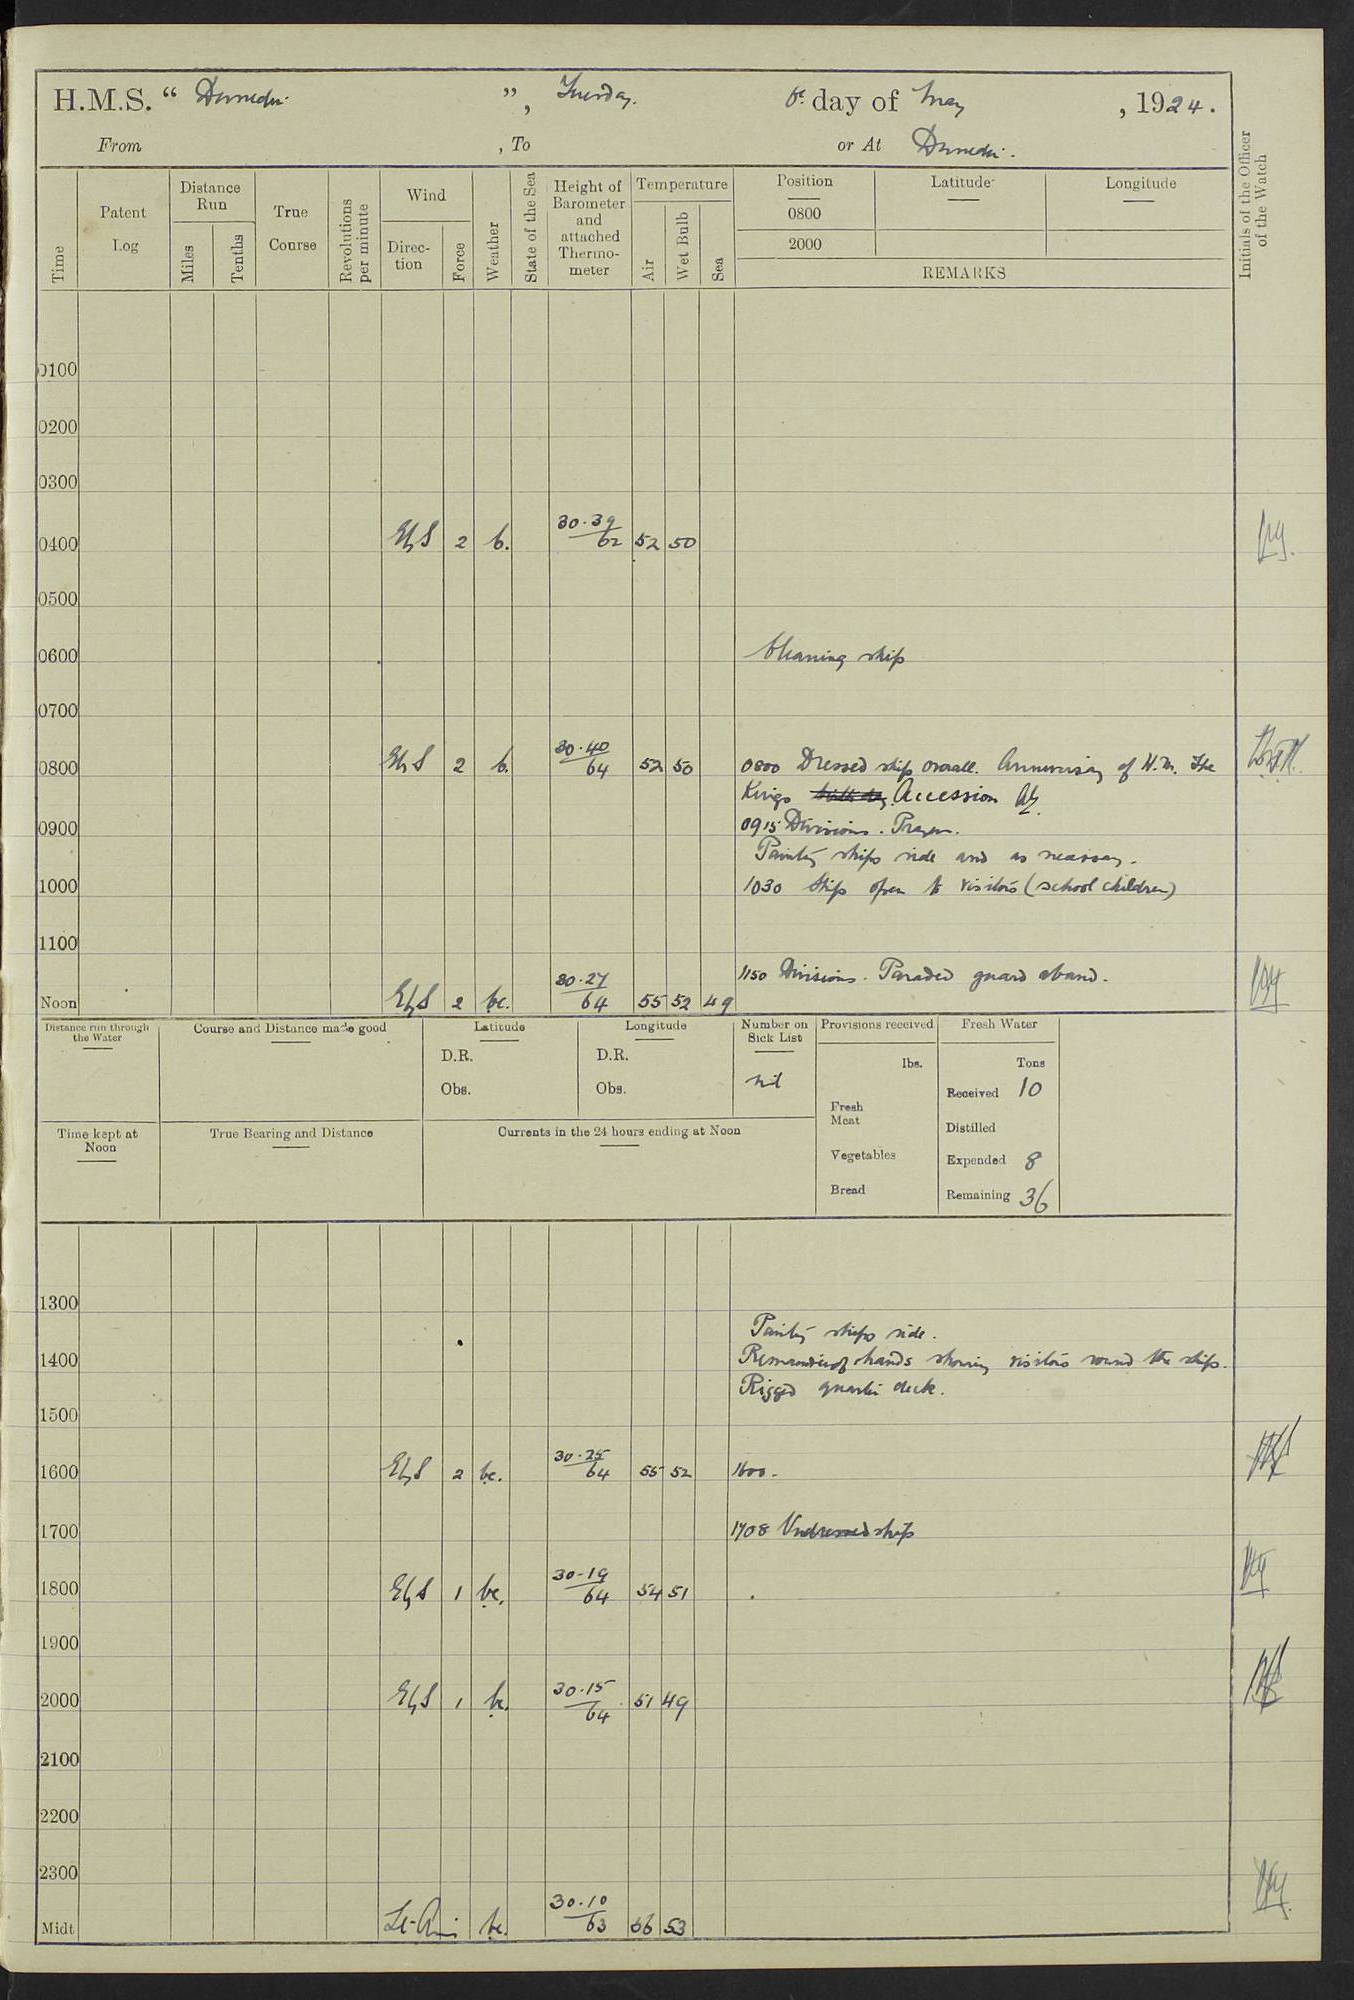 H.M.S. “ Dunedin ”, Tuesday. 6th day of May , 1924.
From , To or At Dunedin.
Time
Patent Log
Distance Run
Miles
Tenths
True Course
Revolutions per minute
Wind
Direc-tion
Force
Weather
State of the Sea
Height of Barometer and attached Thermo-meter
Temperature
Air
Wet Bulb
Sea
Position Latitude Longitude
0800
2000
REMARKS
Initials of the Officer of the Watch
0100
0200
0300
0400 EbyS 2 b. 30.39/62 52 50
0500
0600 Cleaning ship
0700
0800 EbyS 2 b. 30.40/64 52 50 0800 Dressed ship overall. Anniversary of H.M. The
Kings birthday Accession
0900 0915 Divisions. Prayers.
Painting ships side and as necessary.
1000 1030 Ship open to visitors (school children)
1100
1150 Divisions. Paraded guard & band.
Noon EbyS 2 bc. 30.27/64 55 52 49
Distance run through the Water
Course and Distance made good
Latitude
D.R.
Obs.
Longitude
D.R.
Obs.
Number on Sick List
nil
Provisions received
lbs.
Fresh Meat
Vegetables
Bread
Fresh Water
Tons
Received 10
Distilled
Expended 8
Remaining 36
Time kept at Noon
True Bearing and Distance
Currents in the 24 hours ending at Noon
1300
Painting ships side.
1400 Remainder of hands showing visitors round the ship.
Rigged quarter deck.
1500
1600 EbyS 2 bc. 30.25/64 55 52 1600.
1700 1708 Undressed ship
1800 EbyS 1 bc. 30.19/64 54 51
1900
2000 EbyS 1 bc. 30.15/64 51 49
2100
2200
2300
Midt Lt-Airs bc. 30.10/63 56 53